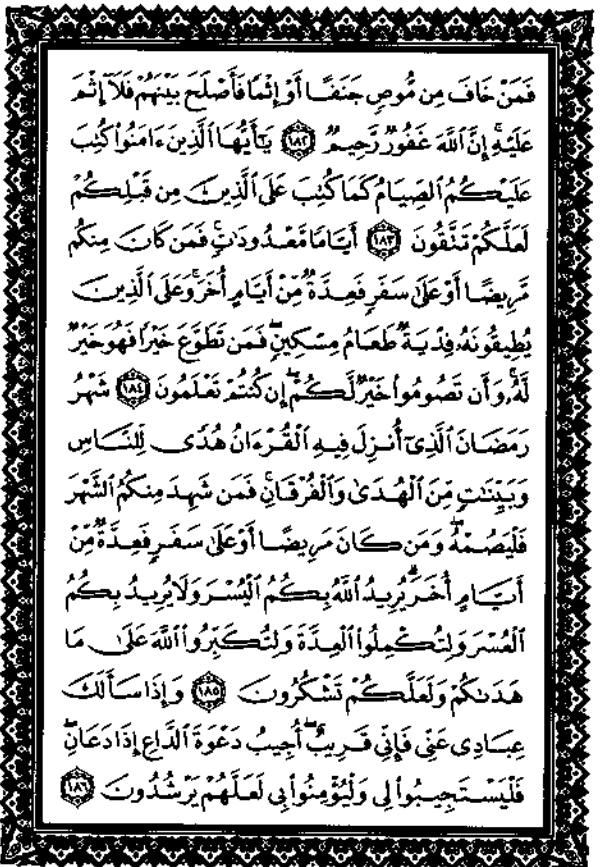 فَمَنْ خَافَ مِن مُّوصٍ جَنَفًا أَوْ إِثْمًا فَأَصْلَحَ بَيْنَهُمْ فَلَآ إِثْمَ
عَلَيْهِ ۚ إِنَّ ٱللَّهَ غَفُورٌ رَّحِيمٌ ١٨٢ يَـٰٓأَيُّهَا ٱلَّذِينَ ءَامَنُوا۟ كُتِبَ
عَلَيْكُمُ ٱلصِّيَامُ كَمَا كُتِبَ عَلَى ٱلَّذِينَ مِن قَبْلِكُمْ
لَعَلَّكُمْ تَتَّقُونَ ١٨٣ أَيَّامًا مَّعْدُودَٰتٍ ۚ فَمَن كَانَ مِنكُم
مَّرِيضًا أَوْ عَلَىٰ سَفَرٍ فَعِدَّةٌ مِّنْ أَيَّامٍ أُخَرَ ۚ وَعَلَى ٱلَّذِينَ
يُطِيقُونَهُۥ فِدْيَةٌ طَعَامُ مِسْكِينٍ ۖ فَمَن تَطَوَّعَ خَيْرًا فَهُوَ خَيْرٌ
لَّهُۥ ۚ وَأَن تَصُومُوا۟ خَيْرٌ لَّكُمْ ۖ إِن كُنتُمْ تَعْلَمُونَ ١٨٤ شَهْرُ
رَمَضَانَ ٱلَّذِىٓ أُنزِلَ فِيهِ ٱلْقُرْءَانُ هُدًى لِّلنَّاسِ
وَبَيِّنَـٰتٍ مِّنَ ٱلْهُدَىٰ وَٱلْفُرْقَانِ ۚ فَمَن شَهِدَ مِنكُمُ ٱلشَّهْرَ
فَلْيَصُمْهُ ۖ وَمَن كَانَ مَرِيضًا أَوْ عَلَىٰ سَفَرٍ فَعِدَّةٌ مِّنْ
أَيَّامٍ أُخَرَ ۗ يُرِيدُ ٱللَّهُ بِكُمُ ٱلْيُسْرَ وَلَا يُرِيدُ بِكُمُ
ٱلْعُسْرَ وَلِتُكْمِلُوا۟ ٱلْعِدَّةَ وَلِتُكَبِّرُوا۟ ٱللَّهَ عَلَىٰ مَا
هَدَىٰكُمْ وَلَعَلَّكُمْ تَشْكُرُونَ ١٨٥ وَإِذَا سَأَلَكَ
عِبَادِى عَنِّى فَإِنِّى قَرِيبٌ ۖ أُجِيبُ دَعْوَةَ ٱلدَّاعِ إِذَا دَعَانِ ۖ
فَلْيَسْتَجِيبُوا۟ لِى وَلْيُؤْمِنُوا۟ بِى لَعَلَّهُمْ يَرْشُدُونَ ١٨٦